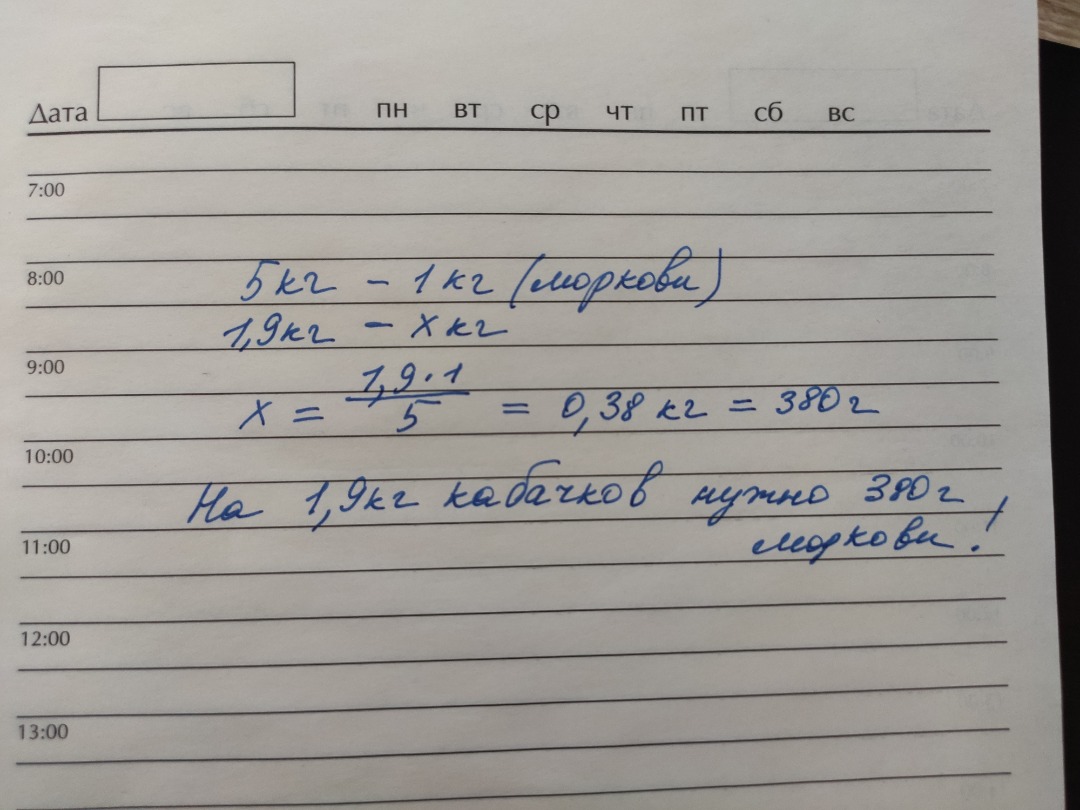 Дата пн вт ср чт пт сб вс
7:00
8:00 5кг - 1кг (моркови)
1,9кг - x кг
9:00
x = 1,9·1/5 = 0,38 кг = 380г
10:00
На 1,9кг кабачков нужно 380г
11:00 моркови!
12:00
13:00